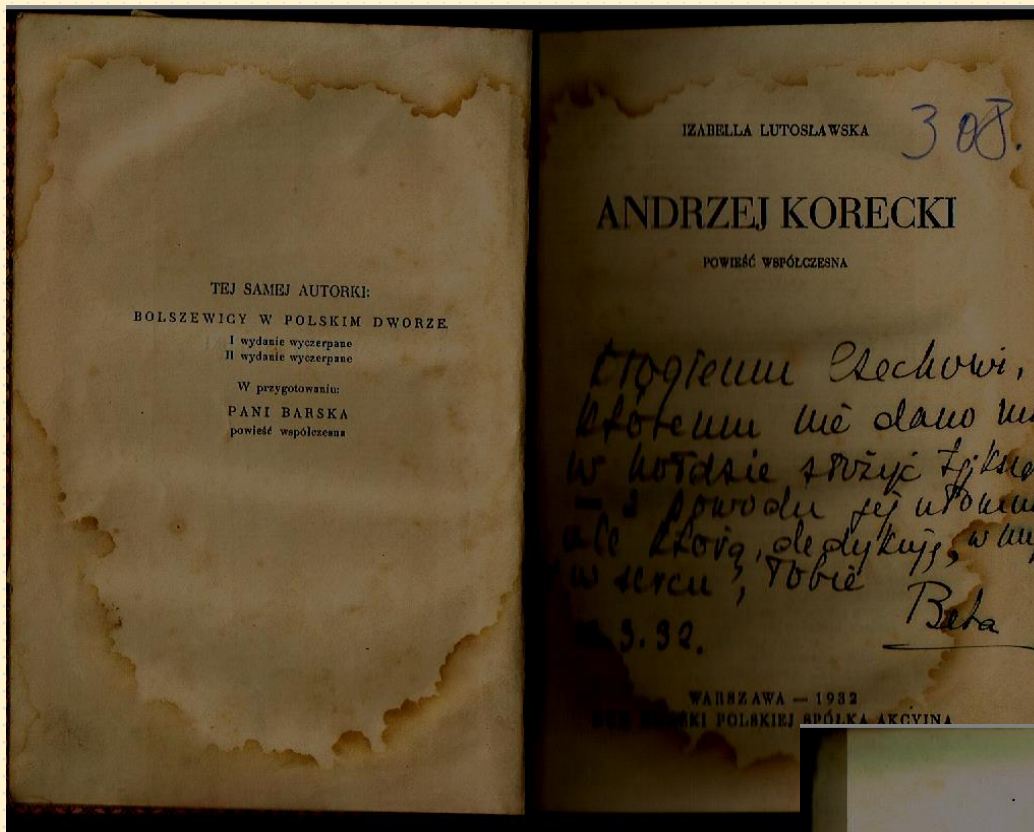 TEJ SAMEJ AUTORKI:
BOLSZEWICY W POLSKIM DWORZE.
I wydanie wyczerpane
II wydanie wyczerpane
W przygotowaniu:
PANI BARSKA
powieść współczesna
IZABELLA LUTOSŁAWSKA
308.
ANDRZEJ KORECKI
POWIEŚĆ WSPÓŁCZESNA
Drogiemu Czechowi,
któremu nie dano
w hołdzie złożyć tej
z powodu jej
ale którą, dedykuję, w
w sercu, Tobie
Beta
3.32.
WARSZAWA — 1932
POLSKIEJ SPÓŁKA AKCYJNA